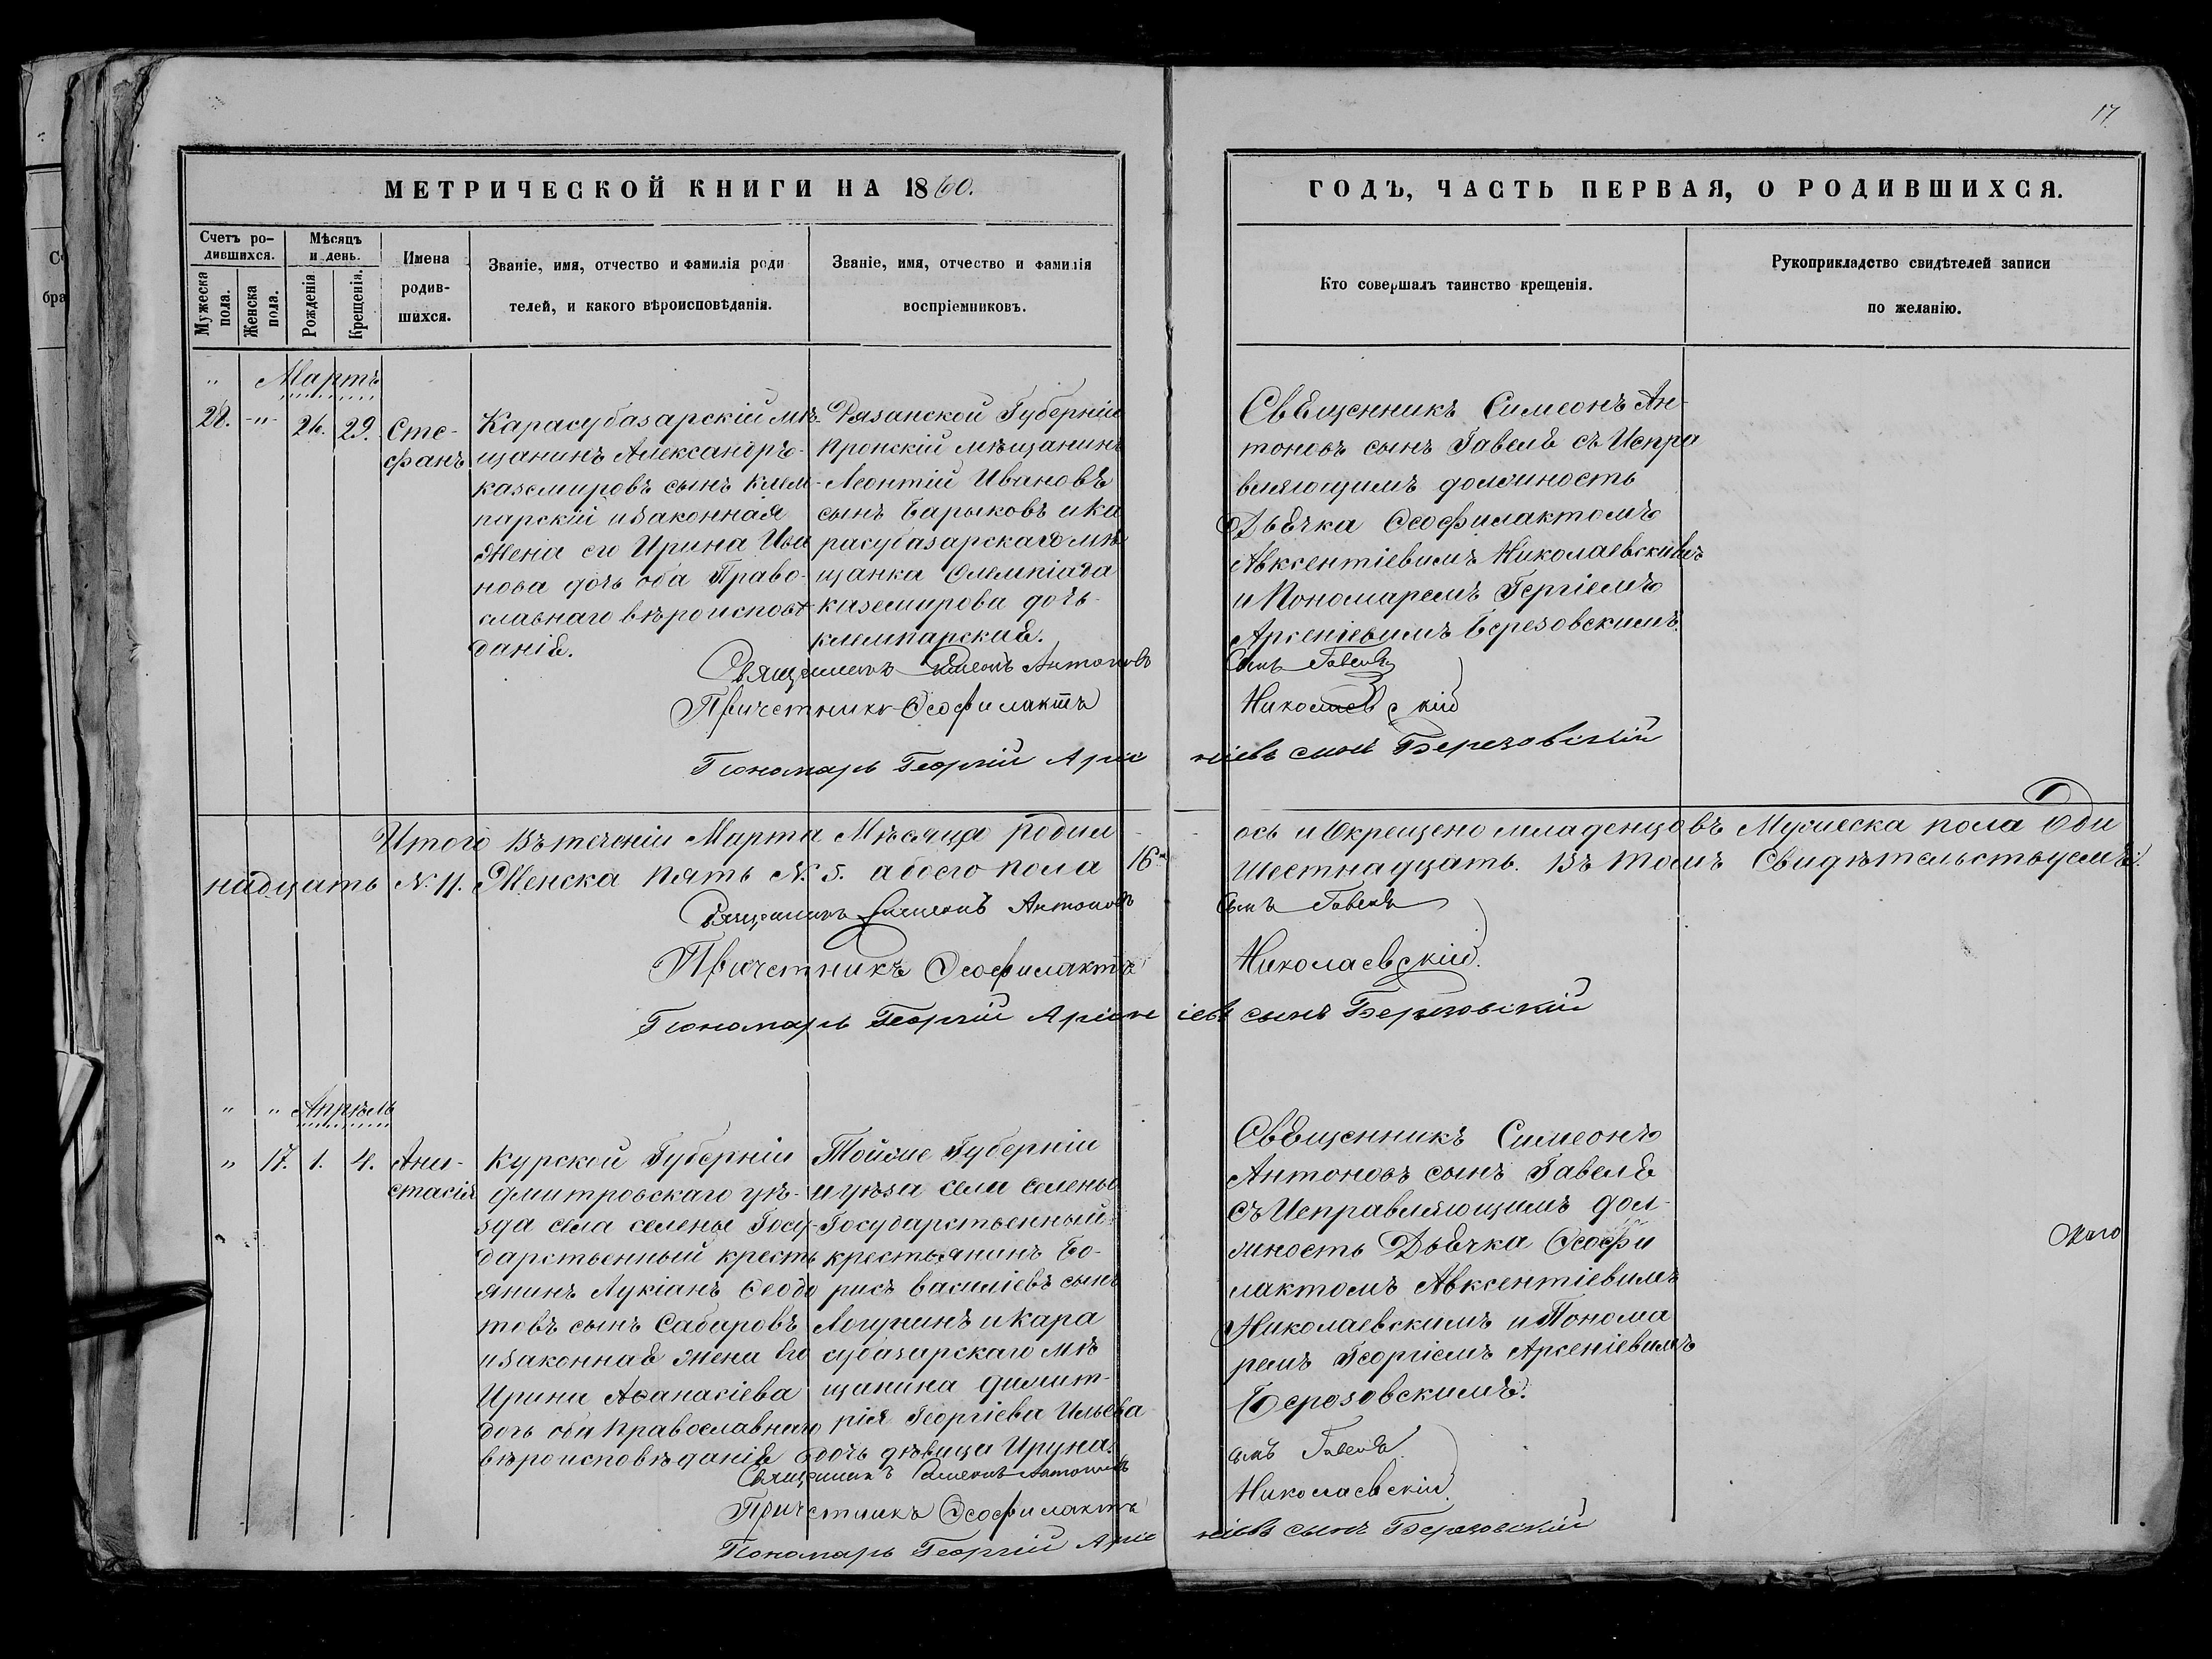 17
МЕТРИЧЕСКОЙ КНИГИ НА 1860.
ГОДЪ, ЧАСТЬ ПЕРВАЯ, О РОДИВШИХСЯ.
Счетъ ро-
дившихся.
Мужеска
пола.
Женска
пола.
Мѣсяцъ
и день.
Рожденія
Крещенія.
Имена
родив-
шихся.
Званіе, имя, отчество и фамилія роди
телей, и какого вѣроисповѣданія.
Званіе, имя, отчество и фамилія
воспріемниковъ.
Кто совершалъ таинство крещенія.
Рукоприкладство свидѣтелей записи
по желанію.
" Мартъ
28. -"- 26. 29.
Сте-
фанъ
Карасубазарскій мѣ-
щанинъ Александръ
каземировъ сынъ Клем-
парскій и законная
Жена его Ирина Ива
нова дочь оба Право-
славнаго вѣроисповѣ
даніѣ.
Рязанской Губерніи
Пронскій мѣщанинъ
Леонтій Ивановъ
сынъ Барыковъ и ка
расубазарскаго мѣ
щанка Олемпіада
каземирова дочь
клемпарскиѣ.
Свѣщенникъ Симеонъ Ан-
тоновъ сынъ Гавелѣ съ Испра
вляющимъ должность
Дьѣчка Ѳеофилактомъ
Авксентіевимъ Николаевскимъ
и Пономаремъ Гергіемъ
Арсеніевимъ Березовскимъ.
Священникъ Симеонъ Антоновъ сынъ Гавелѣ
Причетникъ Ѳеофилактъ Николаевскій
Пономарь Георгій Арсеніевъ сынъ Березовскій
Итого Въ теченіи Марта Мѣсяца родилось и Окрещено младенцовъ Мужеска пола Оди
надцать №. 11. Женска Пять №. 5. а обоего пола 16. Шестнадцать. Въ томъ Свидѣтельствуемъ.
Священникъ Симеонъ Антоновъ сынъ Гавелѣ
Причетникъ Ѳеофилактъ Николаевскій.
Пономарь Георгій Арсеніевъ сынъ Березовскій
" " Апрѣль
" 17. 1. 4.
Ана-
стасія
Курской Губерніи
дмитровскаго уѣ-
зда села селенье Госу-
дарственный кресть
янинъ Лукіанъ Ѳеодо
товъ сынъ Сабуровъ
и законнаѣ жена его
Ирина Аѳанасіева
дочь оба Православнаго
вѣроисповѣданіѣ
Тойже Губерніи
и уѣзда села селенье
Государственный
крестьянинъ Бо-
рисъ василіевъ сынъ
Логунинъ и Кара
субазарскаго мѣ
щанина димит-
рія Георгіева Ильева
дочь дѣвица Ируна.
Свѣщенникъ Симеонъ
Антоновъ сынъ Гавелѣ
съ Исправляющимъ дол-
жность Дьѣчка Ѳеофи
лактомъ Авксентіевимъ
Николаевскимъ и Понома
ремъ Георгіемъ Арсеніевимъ
Березовскимъ.
Священникъ Симеонъ Антоновъ сынъ Гавелѣ
Причетникъ Ѳеофилактъ Николаевскій
Пономарь Георгій Арсеніевъ сынъ Березовскій